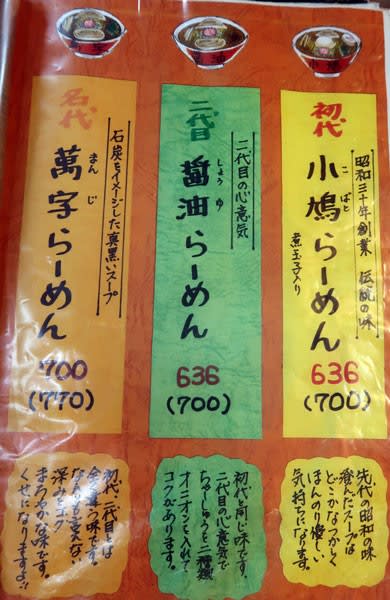 初代
昭和三十年創業 伝統の味
小鳩らーめん
こばと
煮玉子入り
636
(700)
先代の昭和の味
澄んだスープは
どこかなつかしく
ほんのり優しい
気持ちになります。
二代目
二代目の心意気
醤油らーめん
しょうゆ
636
(700)
初代と同じ味です。
二代目の心意気で
オニオンを入れて
コクがあります。
名代
石炭をイメージした真黒いスープ
萬字らーめん
まんじ
700
(770)
初代・二代目とは
全く違う味です。
なんとも言えない
深みとコク
まろやかな味です。
くせになりますよ!!